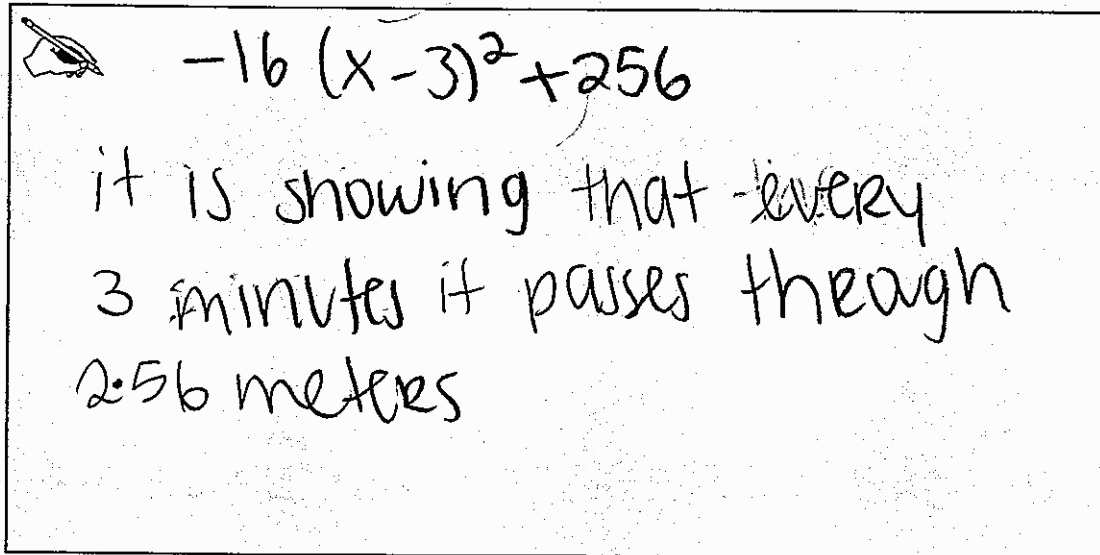 -16 (x-3)² +256
it is showing that every
3 minutes it passes through
2.56 meters